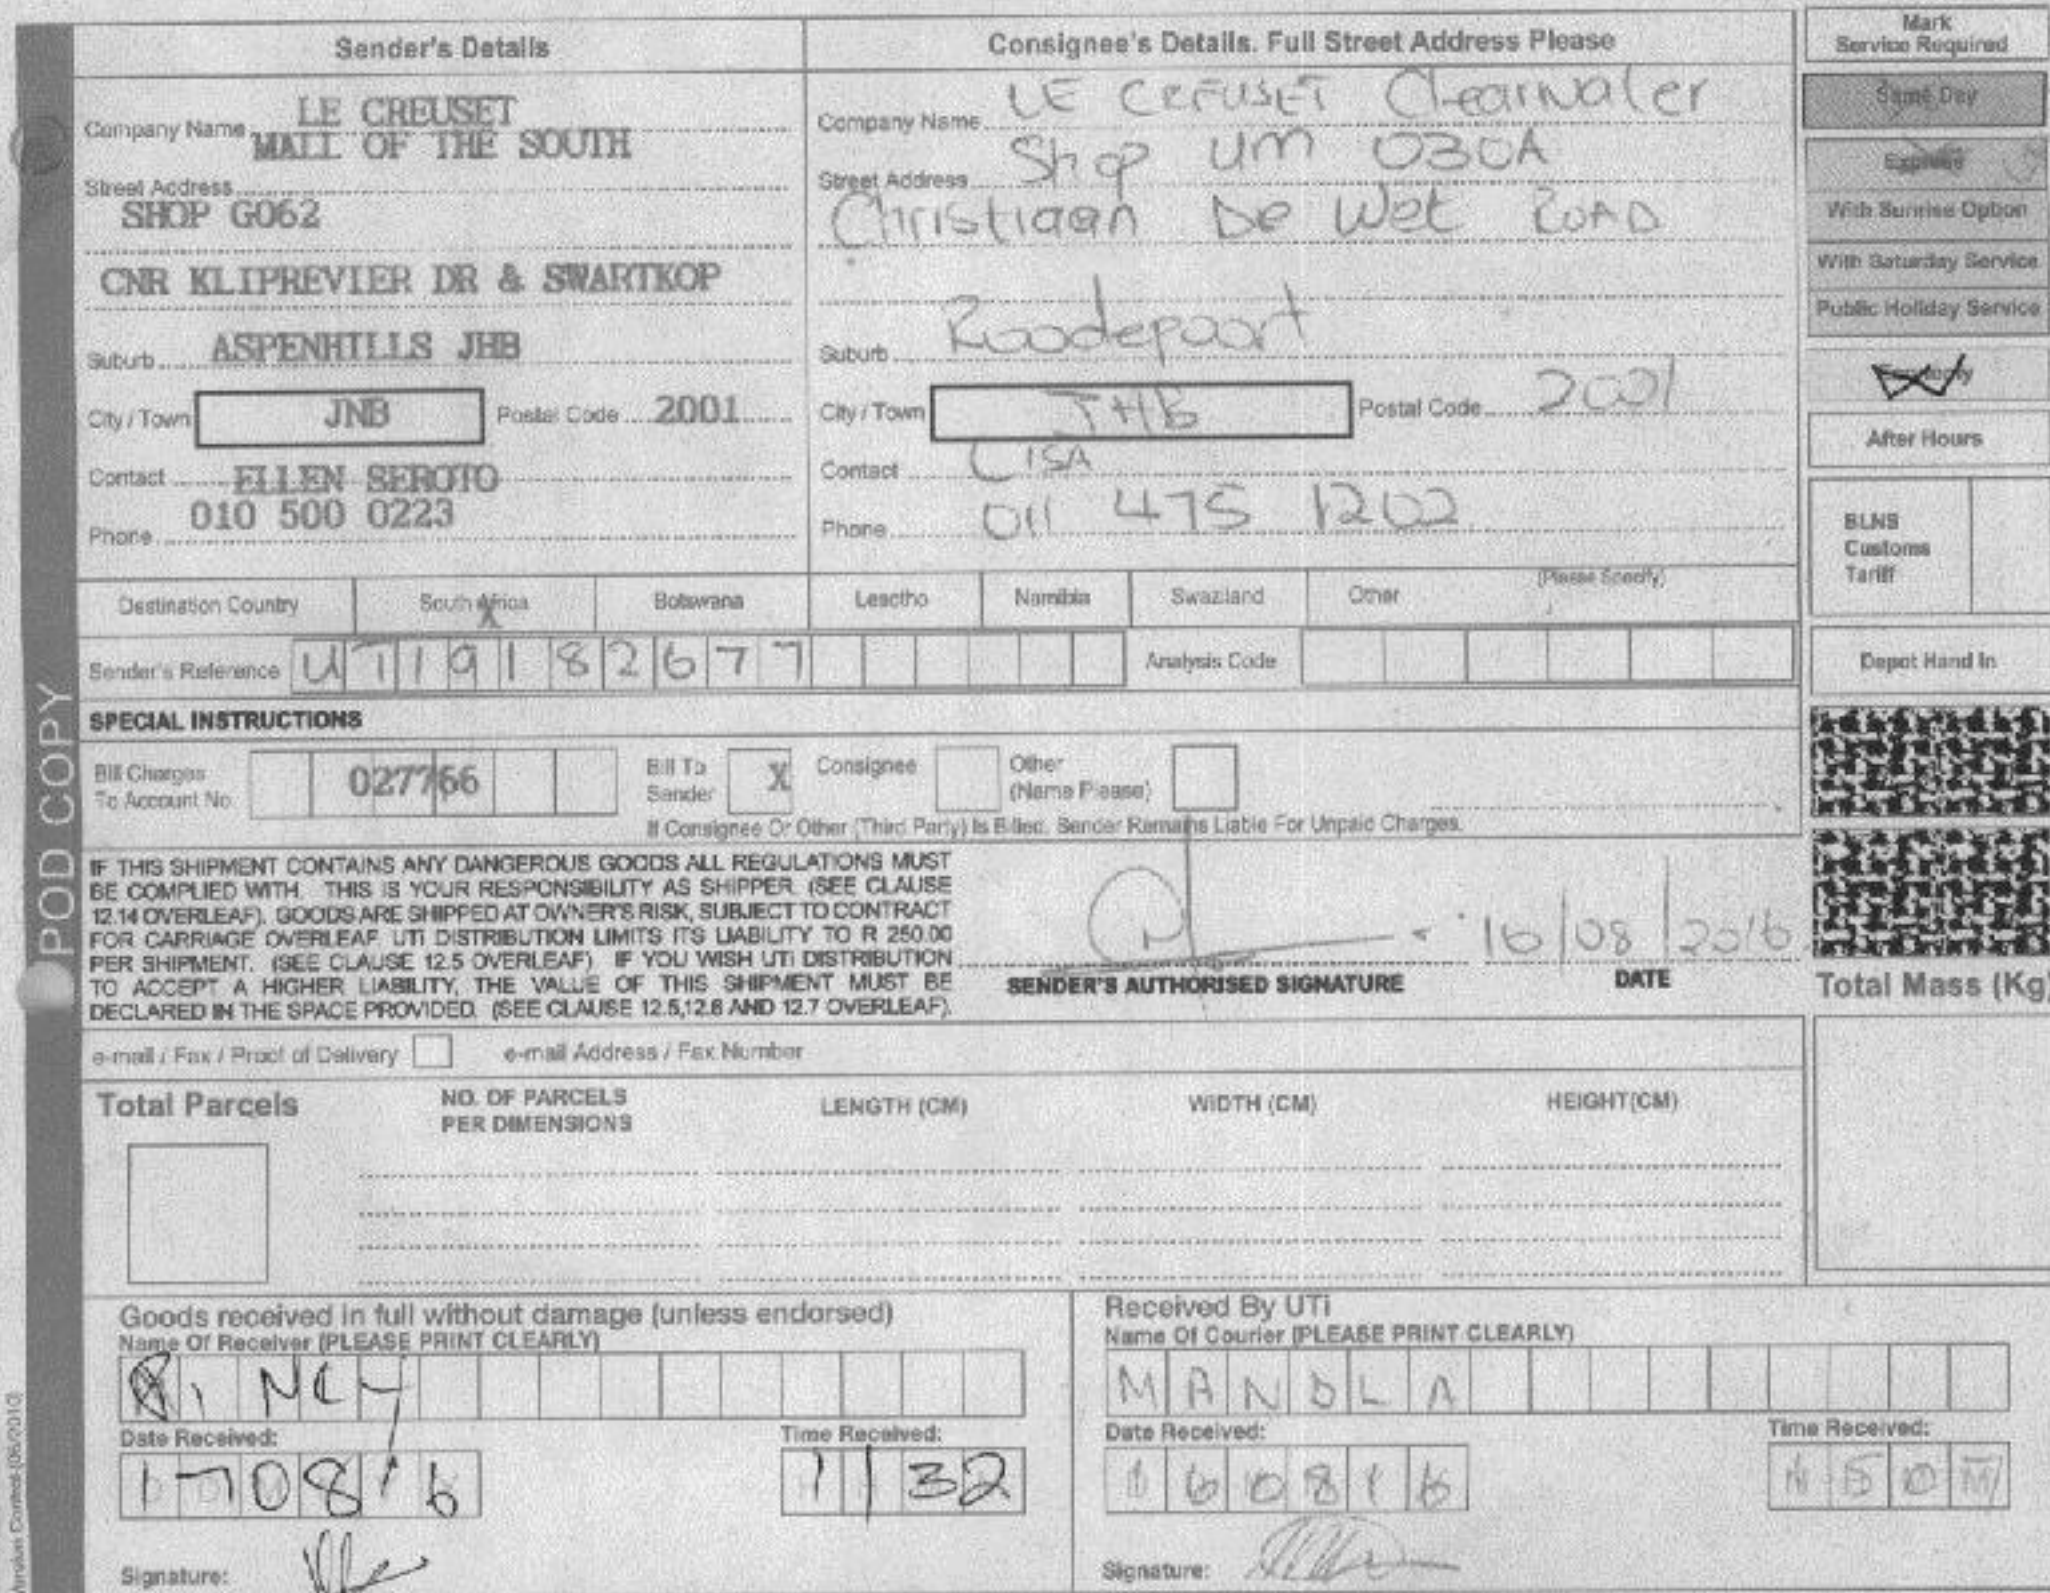 Sender's Details
Company Name LE CREUSET
MALL OF THE SOUTH
Street Address
SHOP G062
CNR KLIPREVIER DR & SWARTKOP
Suburb ASPENHILLS JHB
City / Town JNB Postal Code 2001
Contact ELLEN SEROTO
Phone 010 500 0223
Consignee's Details. Full Street Address Please
Company Name LE CREUSET Clearwater
Street Address Shop UM 030A
Christiaan De Wet ROAD
Suburb Roodepoort
City / Town JHB Postal Code 2001
Contact LISA
Phone 011 475 1202
Mark
Service Required
Same Day
Express
With Sunrise Option
With Saturday Service
Public Holiday Service
After Hours
BLNS
Customs
Tariff
Depot Hand In
Total Mass (Kg)
Destination Country South Africa X Botswana Lesotho Namibia Swaziland Other (Please Specify)
Sender's Reference UT19182677 Analysis Code
SPECIAL INSTRUCTIONS
Bill Charges
To Account No. 027766
Bill To
Sender X Consignee Other
(Name Please)
If Consignee Or Other (Third Party) Is Billed, Sender Remains Liable For Unpaid Charges.
IF THIS SHIPMENT CONTAINS ANY DANGEROUS GOODS ALL REGULATIONS MUST
BE COMPLIED WITH. THIS IS YOUR RESPONSIBILITY AS SHIPPER (SEE CLAUSE
12.14 OVERLEAF). GOODS ARE SHIPPED AT OWNER'S RISK, SUBJECT TO CONTRACT
FOR CARRIAGE OVERLEAF. UTi DISTRIBUTION LIMITS ITS LIABILITY TO R 250.00
PER SHIPMENT. (SEE CLAUSE 12.5 OVERLEAF) IF YOU WISH UTi DISTRIBUTION
TO ACCEPT A HIGHER LIABILITY, THE VALUE OF THIS SHIPMENT MUST BE
DECLARED IN THE SPACE PROVIDED. (SEE CLAUSE 12.5,12.6 AND 12.7 OVERLEAF).
16/08/2016
SENDER'S AUTHORISED SIGNATURE DATE
e-mail / Fax / Proof of Delivery e-mail Address / Fax Number
Total Parcels
NO. OF PARCELS
PER DIMENSIONS
LENGTH (CM) WIDTH (CM) HEIGHT(CM)
Goods received in full without damage (unless endorsed)
Name Of Receiver (PLEASE PRINT CLEARLY)
Date Received: Time Received:
170816 1132
Signature:
Received By UTi
Name Of Courier (PLEASE PRINT CLEARLY)
MANDLA
Date Received: Time Received:
160816
Signature:
POD COPY
Version Control-(06/2010)